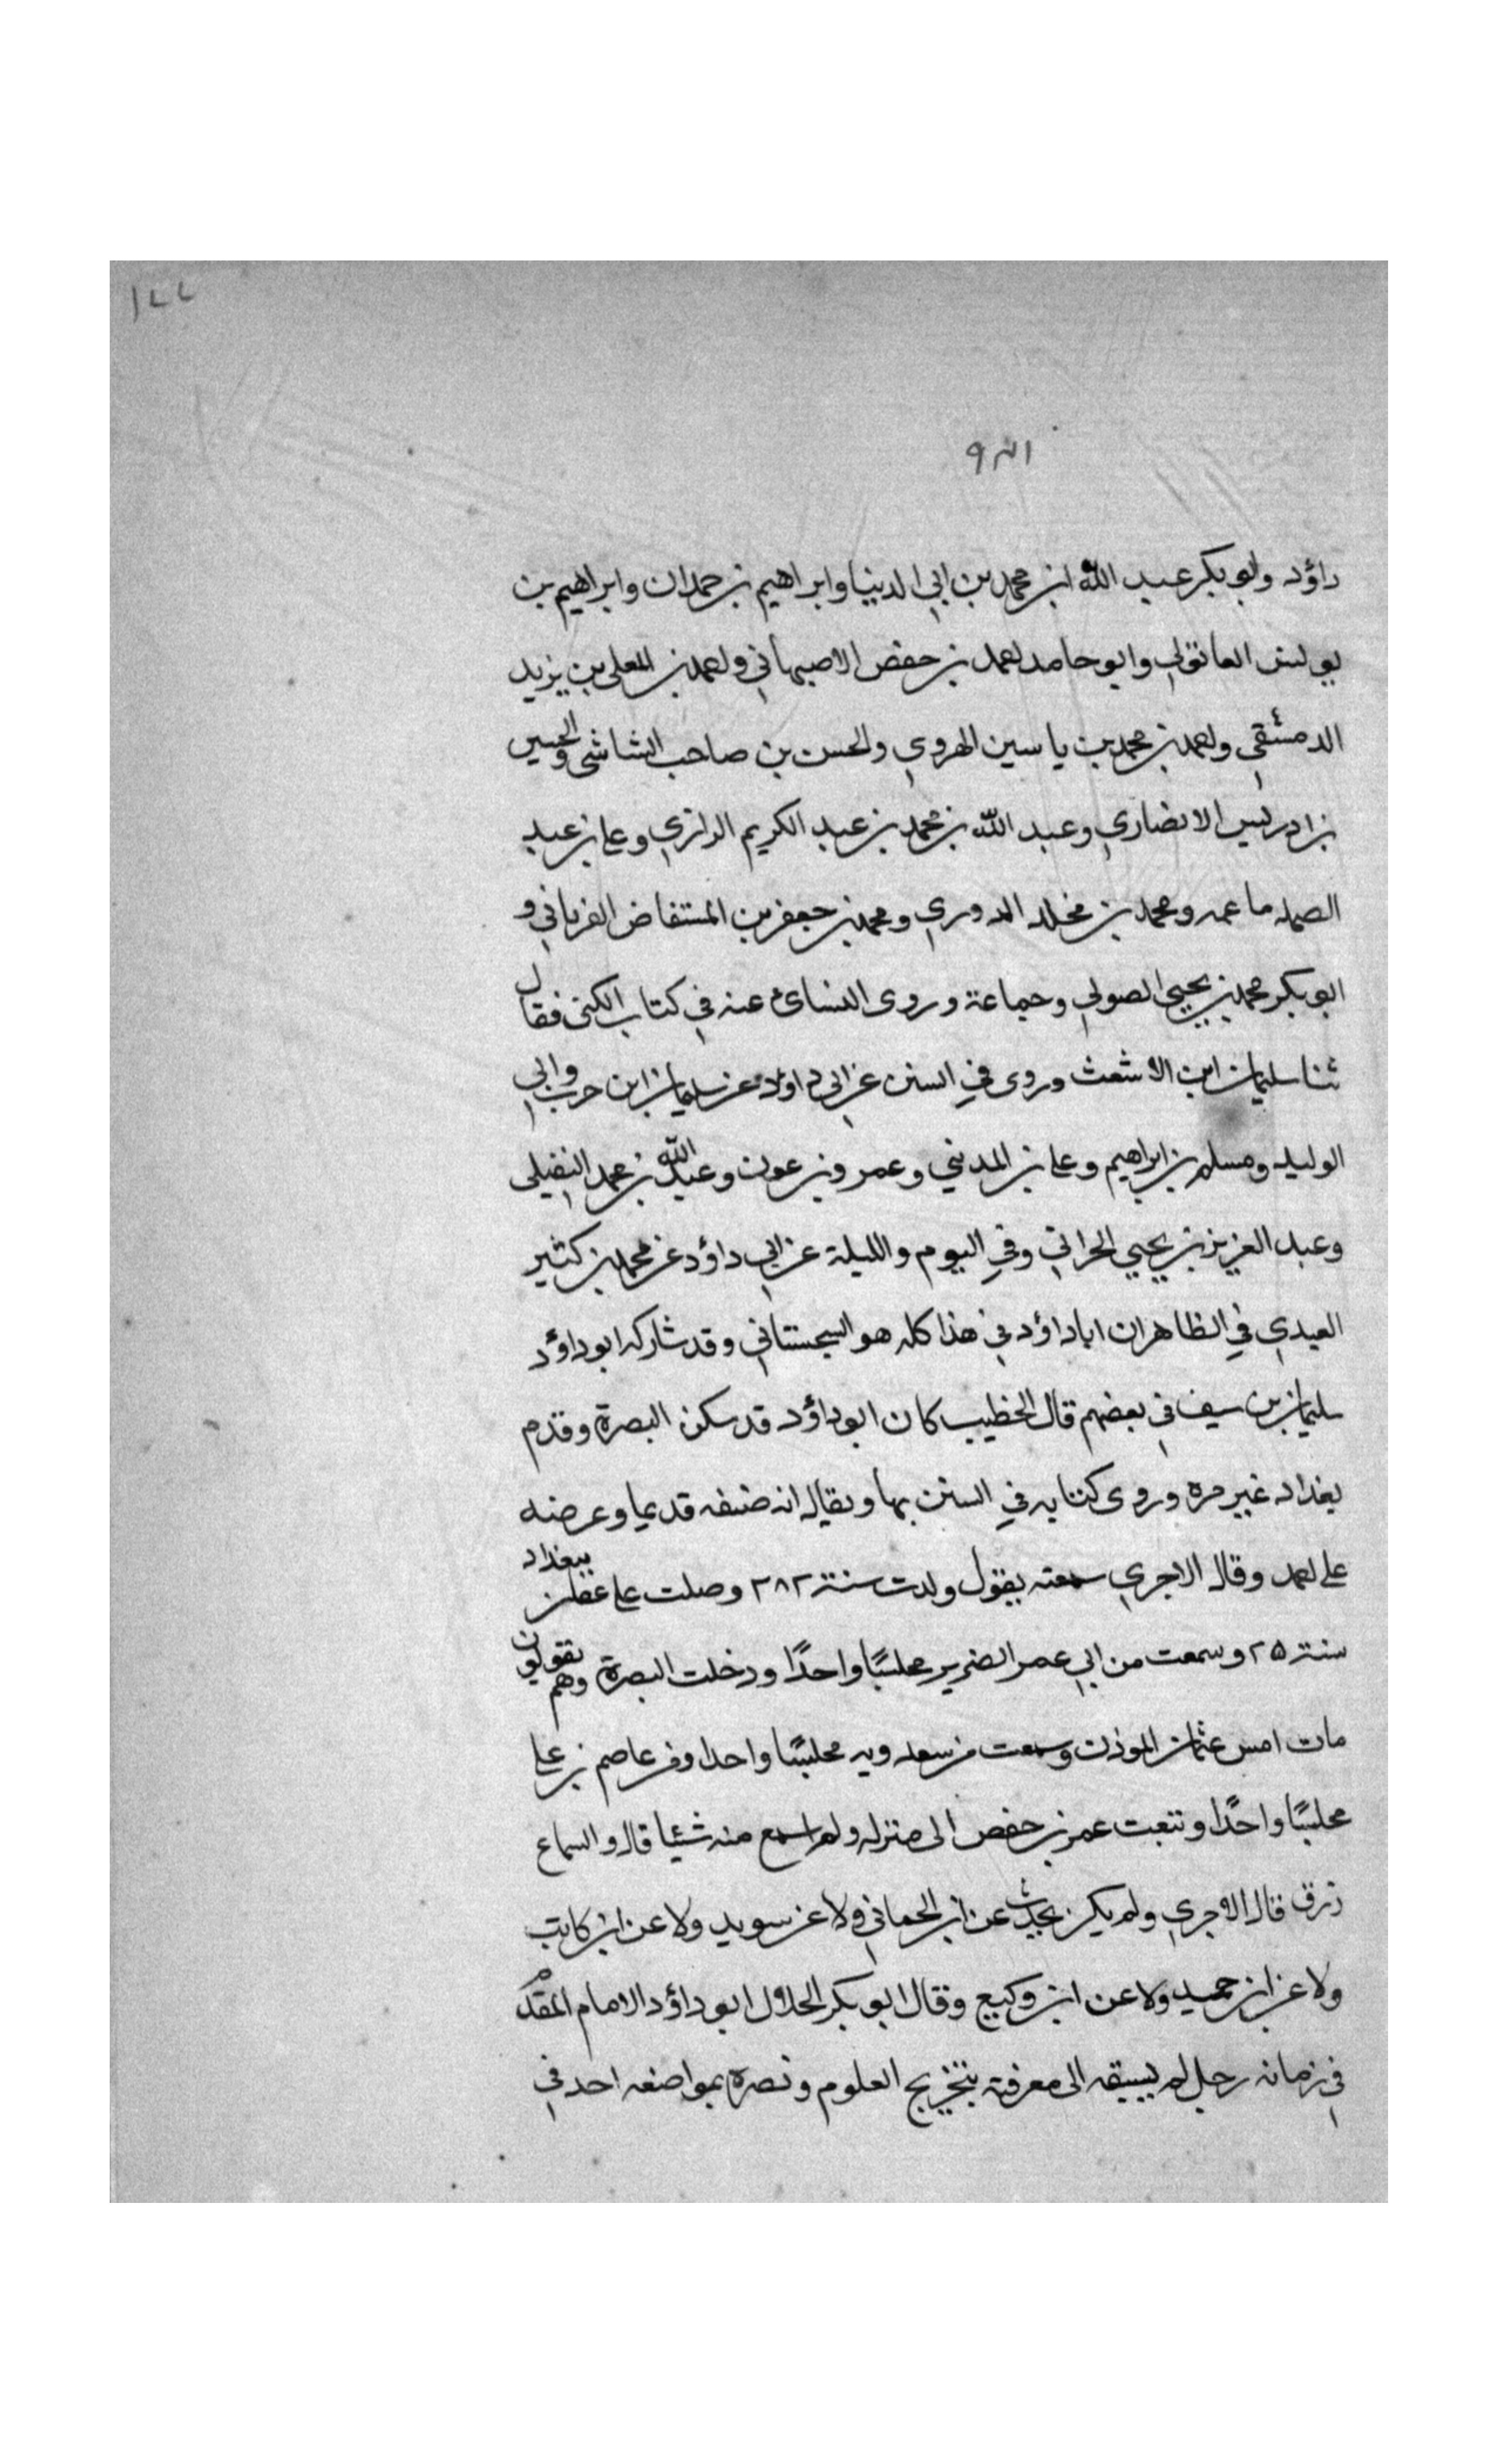 ١٤٤
داؤد وابو بكر عبد الله ابن محمد بن ابي الدنيا وابراهيم بن حمدان وابراهيم بن
يونس العاقولي وابو حامد احمد بن حفص الاصبهاني واحمد بن المعلى بن يزيد
الدمشقي واحمد بن محمد بن ياسين الهروي والحسن بن صاحب الشاشي والحسين
بن ادريس الانصاري وعبد الله بن محمد بن عبد الكريم الرازي وعلي بن عبد
الصمد ما عمه ومحمد بن مخلد الدوري ومحمد بن جعفر بن المستفاض الفريابي و
ابو بكر محمد بن يحيى الصولي وجماعة وروى النسائي عنه في كتاب الكنى فقال
ثنا سليمان ابن الاشعث وروى في السنن عن ابي داؤد عن سليمان ابن حرب وابي
الوليد ومسلم بن ابراهيم وعلي بن المديني وعمرو بن عون وعبد الله بن محمد النفيلي
وعبد العزيز بن يحيي الحراني وفي اليوم والليلة عن ابي داؤد عن محمد بن كثير
العبدي في الظاهر ان ابا داؤد في هذا كله هو السجستاني وقد شاركه ابو داؤد
سليمان بن سيف في بعضهم قال الخطيب كان ابو داؤد قد سكن البصرة وقدم
بغداد غير مره وروى كتابه في السنن بها ويقال انه صنفه قديما وعرضه
على احمد وقال الاجري سمعته يقول ولدت سنة ٢٨٢ وصلت على عفان ببغداد
سنة ٢٥ وسمعت من ابي عمر الضرير مجلسًا واحدًا ودخلت البصرة وهم يقولون
مات امس عثمان الموذن وسمعت من سعدويه مجلسًا واحدا ومن عاصم بن علي
مجلسًا واحدًا وتتبعت عمر بن حفص الى منزله ولم اسمع منه شيئا قال والسماع
رزق قال الاجري ولم يكن يحدث عن ابن الحماني ولا عن سويد ولا عن ابن كاتب
ولا عن ابن حميد ولا عن ابن وكيع وقال ابو بكر الخلال ابو داؤد الامام المقدم
في زمانه رجل لم يسبقه الى معرفته بتخريج العلوم وبصره بمواضعه احد في